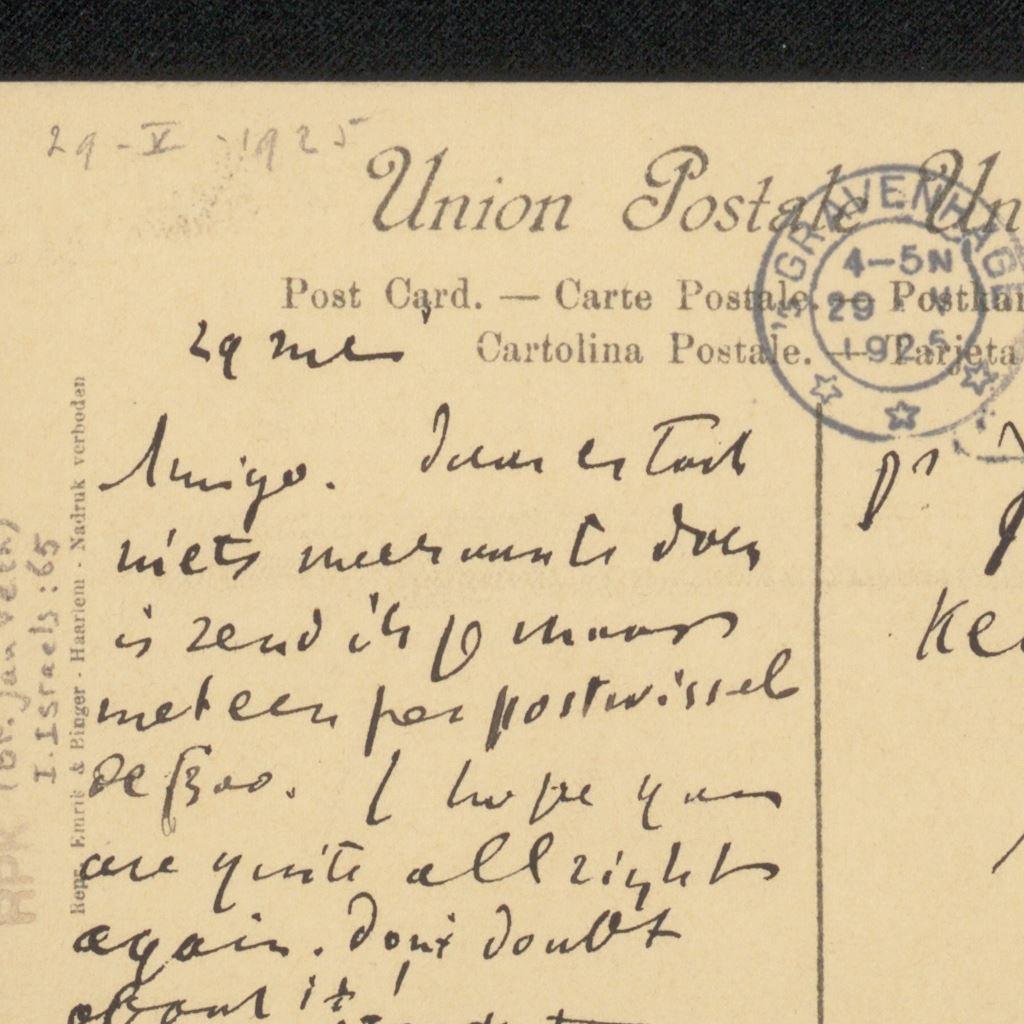 29-V-1925
Union Postale Un
Post Card. — Carte Postale. — Postkar
Cartolina Postale. — Tarjeta
'S GRAVENHAGE
4-5N
29 V
1925
29 mei
Amigo. Daar er toch
niets meer aan te doen
is zend ik je maar
meteen per postwissel
de ƒ300. I hope you
are quite all right
again. Don't doubt
about it!
Ke
Repr. Emrik & Binger - Haarlem - Nadruk verboden
I. Israels: 65
RPK (Br. Jan Veth)